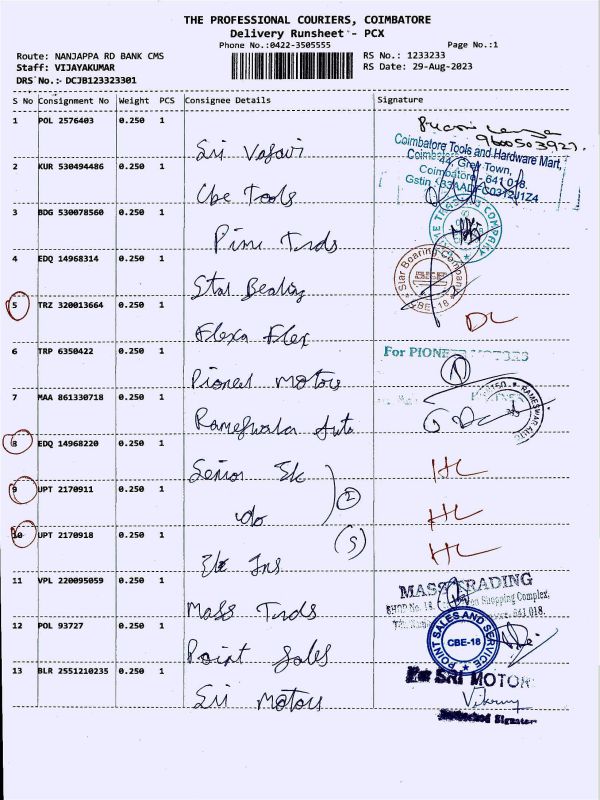 THE PROFESSIONAL COURIERS, COIMBATORE
Delivery Runsheet - PCX
Phone No.:0422-3505555 Page No.:1
Route: NANJAPPA RD BANK CMS RS No.: 1233233
Staff: VIJAYAKUMAR RS Date: 29-Aug-2023
DRS No.:- DCJB123323301
S No Consignment No Weight PCS Consignee Details Signature
1 POL 2576403 0.250 1
9600503927.
Sri Vasavi
Coimbatore Tools and Hardware Mart,
2 KUR 530494486 0.250 1
44, Grey Town,
Coimbatore - 641 018.
Cbe Tools
3 BDG 530078560 0.250 1
Trds
4 EDQ 14968314 0.250 1
Star Bearing Company
CBE-18
Star Bearing
5 TRZ 320013664 0.250 1
DL
Flexa Flex
6 TRP 6350422 0.250 1
For PIONEER MOTORS
Pioneer Motors
7 MAA 861330718 0.250 1
Auto
8 EDQ 14968220 0.250 1
HL
Senior
9 UPT 2170911 0.250 1
2
HL
do
10 UPT 2170918 0.250 1
HL
11 VPL 220095059 0.250 1
MASS TRADING
Shopping Complex,
641 018.
Mass Trds
12 POL 93727 0.250 1
POINT SALES AND SERVICE
CBE-18
Point Sales
13 BLR 2551210235 0.250 1
SRI MOTOR
Sri Motors